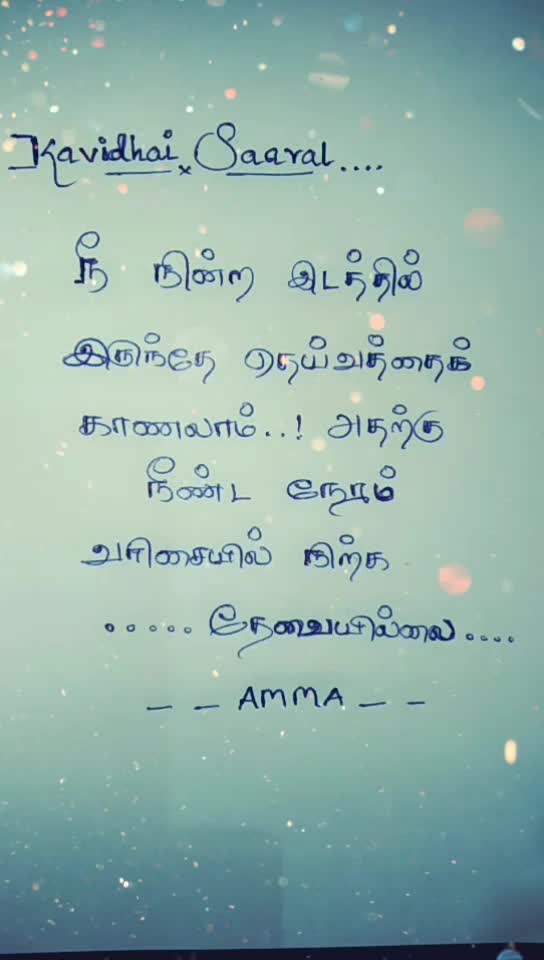 Kavidhai Saaral....
நீ நின்ற இடத்தில்
இருந்தே தெய்வத்தைக்
காணலாம்..! அதற்கு
நீண்ட நேரம்
வரிசையில் நிற்க
..... தேவையில்லை....
_ _ AMMA _ _